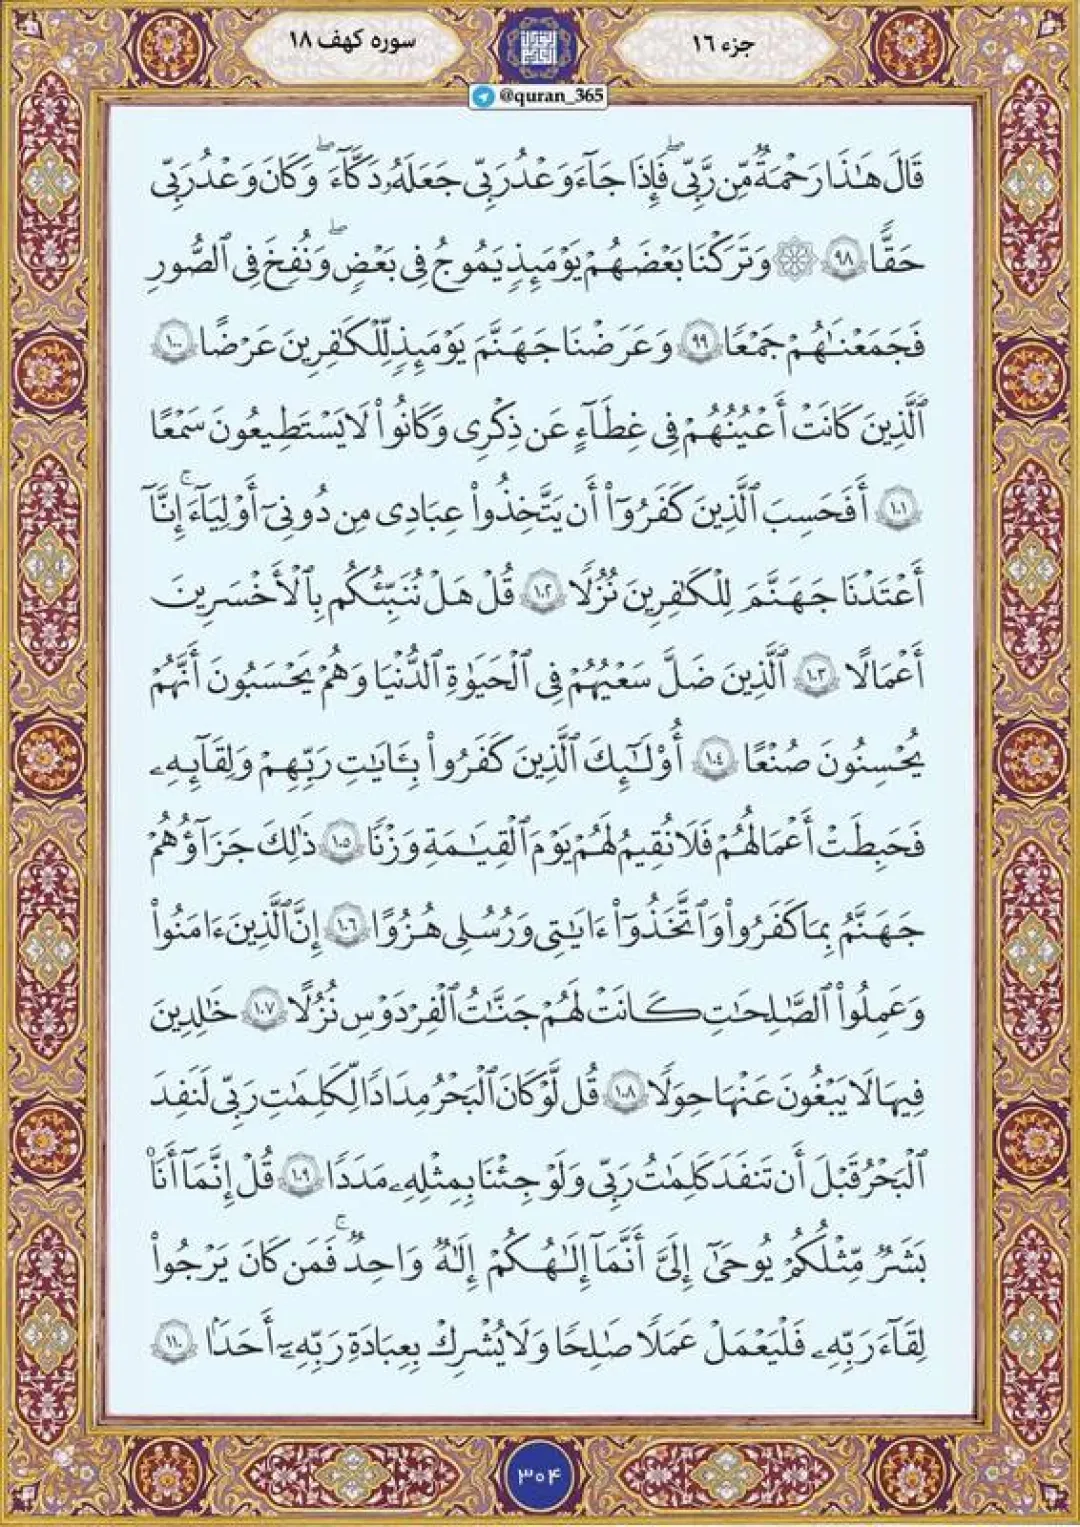 جزء ۱۶
سوره کهف ۱۸
@quran_365
قَالَ هَـٰذَا رَحْمَةٌ مِّن رَّبِّى ۖ فَإِذَا جَآءَ وَعْدُ رَبِّى جَعَلَهُۥ دَكَّآءَ ۖ وَكَانَ وَعْدُ رَبِّى
حَقًّا ٩٨ ۞ وَتَرَكْنَا بَعْضَهُمْ يَوْمَئِذٍ يَمُوجُ فِى بَعْضٍ ۖ وَنُفِخَ فِى ٱلصُّورِ
فَجَمَعْنَـٰهُمْ جَمْعًا ٩٩ وَعَرَضْنَا جَهَنَّمَ يَوْمَئِذٍ لِّلْكَـٰفِرِينَ عَرْضًا ١٠٠
ٱلَّذِينَ كَانَتْ أَعْيُنُهُمْ فِى غِطَآءٍ عَن ذِكْرِى وَكَانُوا۟ لَا يَسْتَطِيعُونَ سَمْعًا
١٠١ أَفَحَسِبَ ٱلَّذِينَ كَفَرُوٓا۟ أَن يَتَّخِذُوا۟ عِبَادِى مِن دُونِىٓ أَوْلِيَآءَ ۚ إِنَّآ
أَعْتَدْنَا جَهَنَّمَ لِلْكَـٰفِرِينَ نُزُلًا ١٠٢ قُلْ هَلْ نُنَبِّئُكُم بِٱلْأَخْسَرِينَ
أَعْمَـٰلًا ١٠٣ ٱلَّذِينَ ضَلَّ سَعْيُهُمْ فِى ٱلْحَيَوٰةِ ٱلدُّنْيَا وَهُمْ يَحْسَبُونَ أَنَّهُمْ
يُحْسِنُونَ صُنْعًا ١٠٤ أُو۟لَـٰٓئِكَ ٱلَّذِينَ كَفَرُوا۟ بِـَٔايَـٰتِ رَبِّهِمْ وَلِقَآئِهِۦ
فَحَبِطَتْ أَعْمَـٰلُهُمْ فَلَا نُقِيمُ لَهُمْ يَوْمَ ٱلْقِيَـٰمَةِ وَزْنًا ١٠٥ ذَٰلِكَ جَزَآؤُهُمْ
جَهَنَّمُ بِمَا كَفَرُوا۟ وَٱتَّخَذُوٓا۟ ءَايَـٰتِى وَرُسُلِى هُزُوًا ١٠٦ إِنَّ ٱلَّذِينَ ءَامَنُوا۟
وَعَمِلُوا۟ ٱلصَّـٰلِحَـٰتِ كَانَتْ لَهُمْ جَنَّـٰتُ ٱلْفِرْدَوْسِ نُزُلًا ١٠٧ خَـٰلِدِينَ
فِيهَا لَا يَبْغُونَ عَنْهَا حِوَلًا ١٠٨ قُل لَّوْ كَانَ ٱلْبَحْرُ مِدَادًا لِّكَلِمَـٰتِ رَبِّى لَنَفِدَ
ٱلْبَحْرُ قَبْلَ أَن تَنفَدَ كَلِمَـٰتُ رَبِّى وَلَوْ جِئْنَا بِمِثْلِهِۦ مَدَدًا ١٠٩ قُلْ إِنَّمَآ أَنَا۠
بَشَرٌ مِّثْلُكُمْ يُوحَىٰٓ إِلَىَّ أَنَّمَآ إِلَـٰهُكُمْ إِلَـٰهٌ وَٰحِدٌ ۖ فَمَن كَانَ يَرْجُوا۟
لِقَآءَ رَبِّهِۦ فَلْيَعْمَلْ عَمَلًا صَـٰلِحًا وَلَا يُشْرِكْ بِعِبَادَةِ رَبِّهِۦٓ أَحَدًۢا ١١٠
۳۰۴